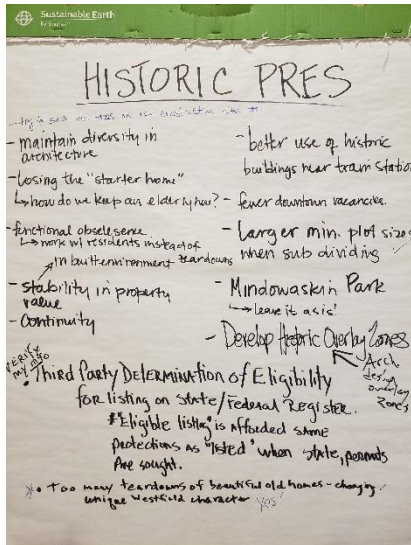 Sustainable Earth
by Staples
HISTORIC PRES
- maintain diversity in
architecture
- losing the "starter home"
↳ how do we keep our elderly here?
- functional obselesence
↳ work w/ residents instead of
teardowns
in built environment
- stability in property
value
- Continuity
- better use of historic
buildings near train station
- fewer downtown vacancies
- Larger min. plot sizes
when sub dividing
- Mindowaskin Park
↳ leave it as is!
- Develop Historic Overlay Zones
Arch
design
overlay
zones
VERIFY
my info
• Third Party Determination of Eligibility
for listing on State/Federal Register.
* "Eligible listing" is afforded same
protections as "listed" when state, permits
are sought.
* • Too many teardowns of beautiful old homes - changing
unique Westfield character yes!